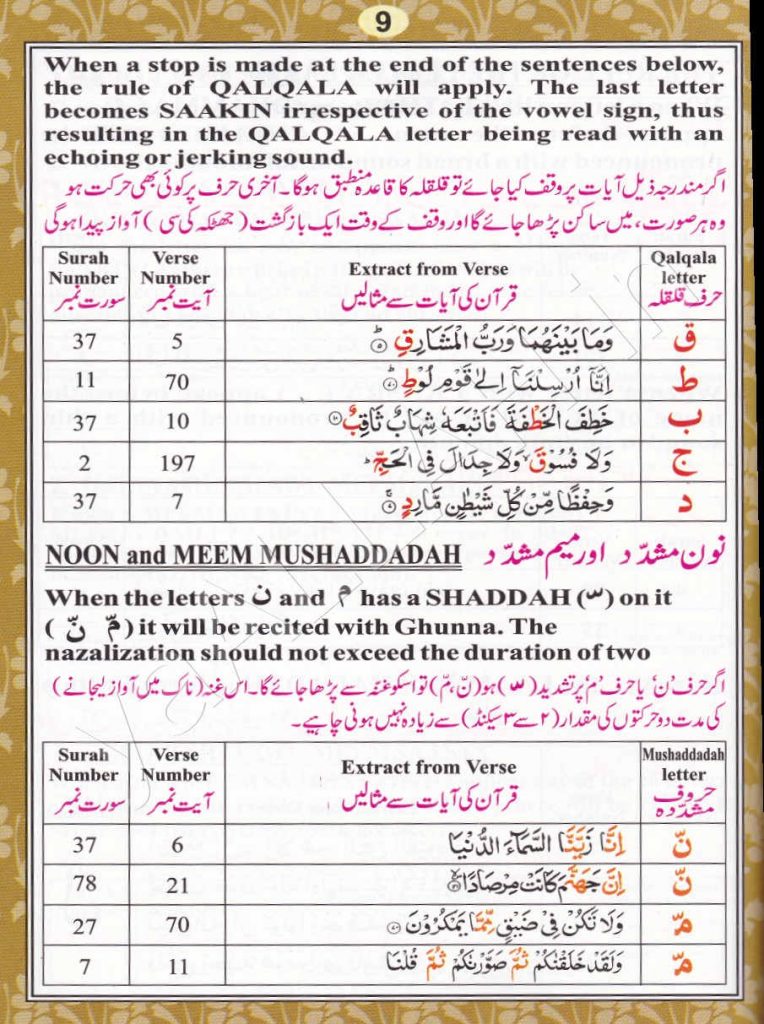 9
When a stop is made at the end of the sentences below,
the rule of QALQALA will apply. The last letter
becomes SAAKIN irrespective of the vowel sign, thus
resulting in the QALQALA letter being read with an
echoing or jerking sound.
اگر مندرجہ ذیل آیات پر وقف کیا جائے تو قلقلہ کا قاعدہ منطبق ہوگا۔ آخری حرف پر کوئی بھی حرکت ہو
وہ ہر صورت، میں ساکن پڑھا جائے گا اور وقف کے وقت ایک بازگشت (جھٹکہ کی سی) آواز پیدا ہوگی
Surah Number سورت نمبر Verse Number آیت نمبر Extract from Verse قرآن کی آیات سے مثالیں Qalqala letter حرف قلقلہ
37 5 وَمَا بَيْنَهُمَا وَرَبُّ الْمَشَارِقِ ۵ ق
11 70 اِنَّآ اُرْسِلْنَآ اِلٰى قَوْمِ لُوْطٍ ۷۰ ط
37 10 خَطِفَ الْخَطْفَةَ فَاَتْبَعَهٗ شِهَابٌ ثَاقِبٌ ۱۰ ب
2 197 وَلَا فُسُوْقَ وَلَا جِدَالَ فِى الْحَجِّ ج
37 7 وَحِفْظًا مِّنْ كُلِّ شَيْطٰنٍ مَّارِدٍ ۷ د
NOON and MEEM MUSHADDADAH نون مشدّد اور میم مشدّد
When the letters ن and م has a SHADDAH (ّ) on it
(نّ مّ) it will be recited with Ghunna. The
nazalization should not exceed the duration of two
اگر حرف 'ن' یا حرف 'م' پر تشدید (ّ) ہو (نّ، مّ) تو اسکو غنہ سے پڑھا جائے گا۔ اس غنہ (ناک میں آواز لیجانے)
کی مدت دو حرکتوں کی مقدار (۲ سے ۳ سیکنڈ) سے زیادہ نہیں ہونی چاہیے۔
Surah Number سورت نمبر Verse Number آیت نمبر Extract from Verse قرآن کی آیات سے مثالیں Mushaddadah letter حروف مشدّدہ
37 6 اِنَّا زَيَّنَّا السَّمَآءَ الدُّنْيَا نّ
78 21 اِنَّ جَهَنَّمَ كَانَتْ مِرْصَادًا ۲۱ نّ
27 70 وَلَا تَكُنْ فِىْ ضَيْقٍ مِّمَّا يَمْكُرُوْنَ ۷۰ مّ
7 11 وَلَقَدْ خَلَقْنٰكُمْ ثُمَّ صَوَّرْنٰكُمْ ثُمَّ قُلْنَا مّ